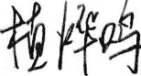 植烨鸣